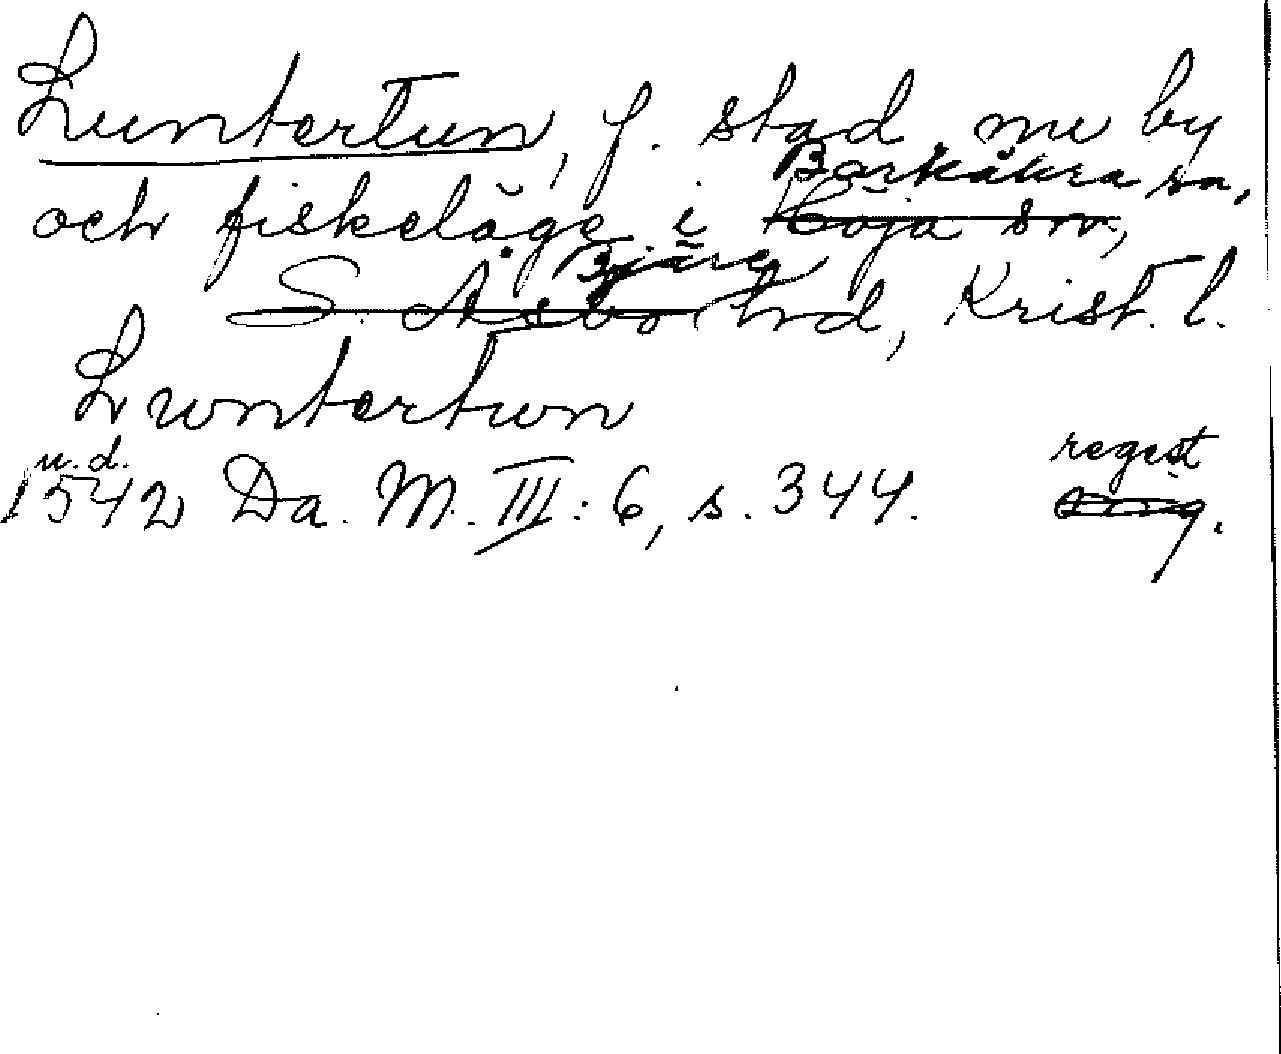 Luntertun, f. stad, nu by
Barkåkra sn,
och fiskeläge i Höja sn,
Bjäre
S. Åsbo hrd, Krist. l.
Luntertun
u.d.
1542 Da. M. III: 6, s. 344.
regest